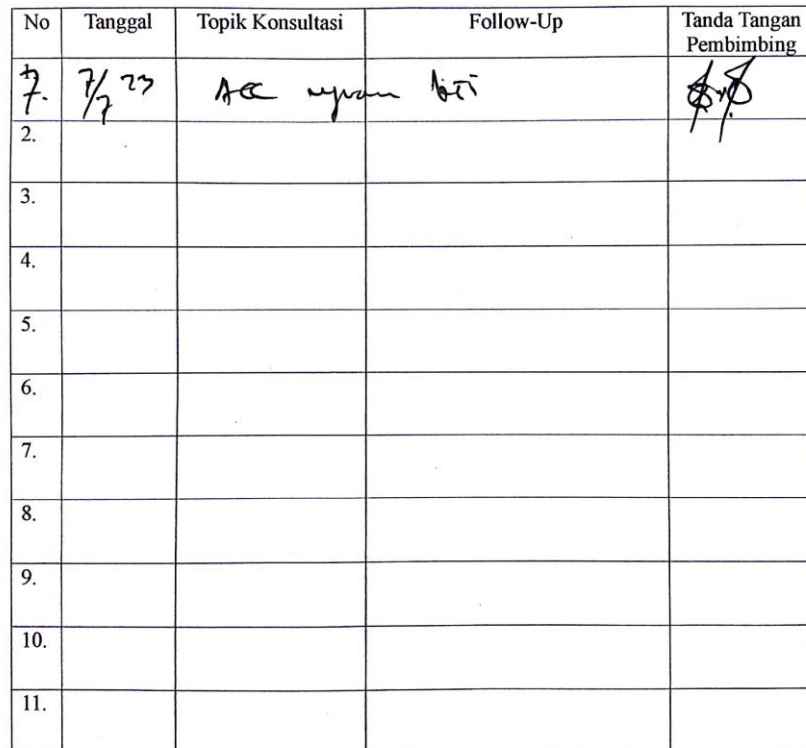 No Tanggal Topik Konsultasi Follow-Up Tanda Tangan
Pembimbing
7. 7/7 23 Acc
2.
3.
4.
5.
6.
7.
8.
9.
10.
11.